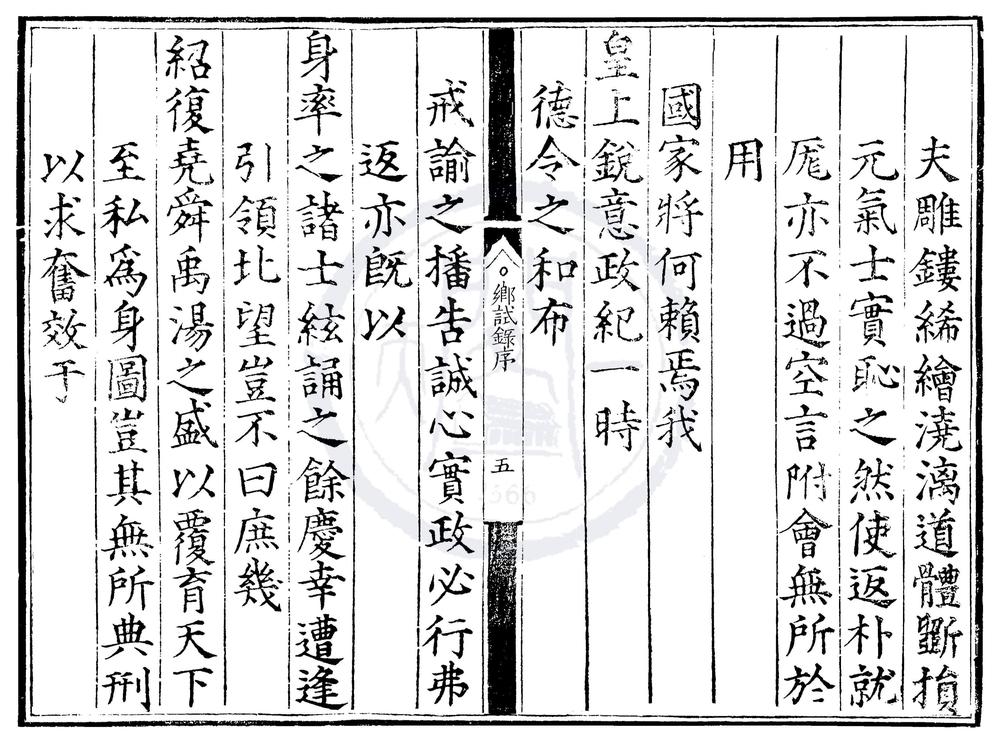 夫雕鏤絺繪澆漓道體斵損
元氣士實恥之然使返朴就
厖亦不過空言附會無所於
用
國家將何賴焉我
皇上銳意政紀一時
德令之和布
鄉試錄序
五
戒諭之播告誠心實政必行弗
返亦旣以
身率之諸士絃誦之餘慶幸遭逢
引領北望豈不曰庶幾
紹復堯舜禹湯之盛以覆育天下
至私爲身圖豈其無所典刑
以求奮效于